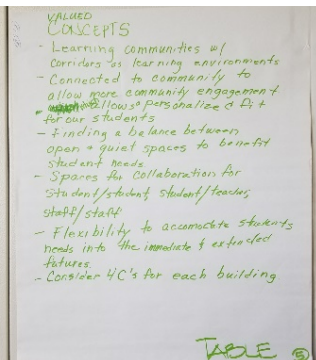 VALUED
CONCEPTS
- Learning communities w/
Corridors as learning environments
- Connected to community to
allow more community engagement
- allows personalize & fit
for our students
- Finding a balance between
open + quiet spaces to benefit
student needs
- Spaces for collaboration for
student/student, student/teacher,
staff/staff
- Flexibility to accomodate students
needs into the immediate & extended
futures.
- Consider 4 C's for each building
TABLE 5